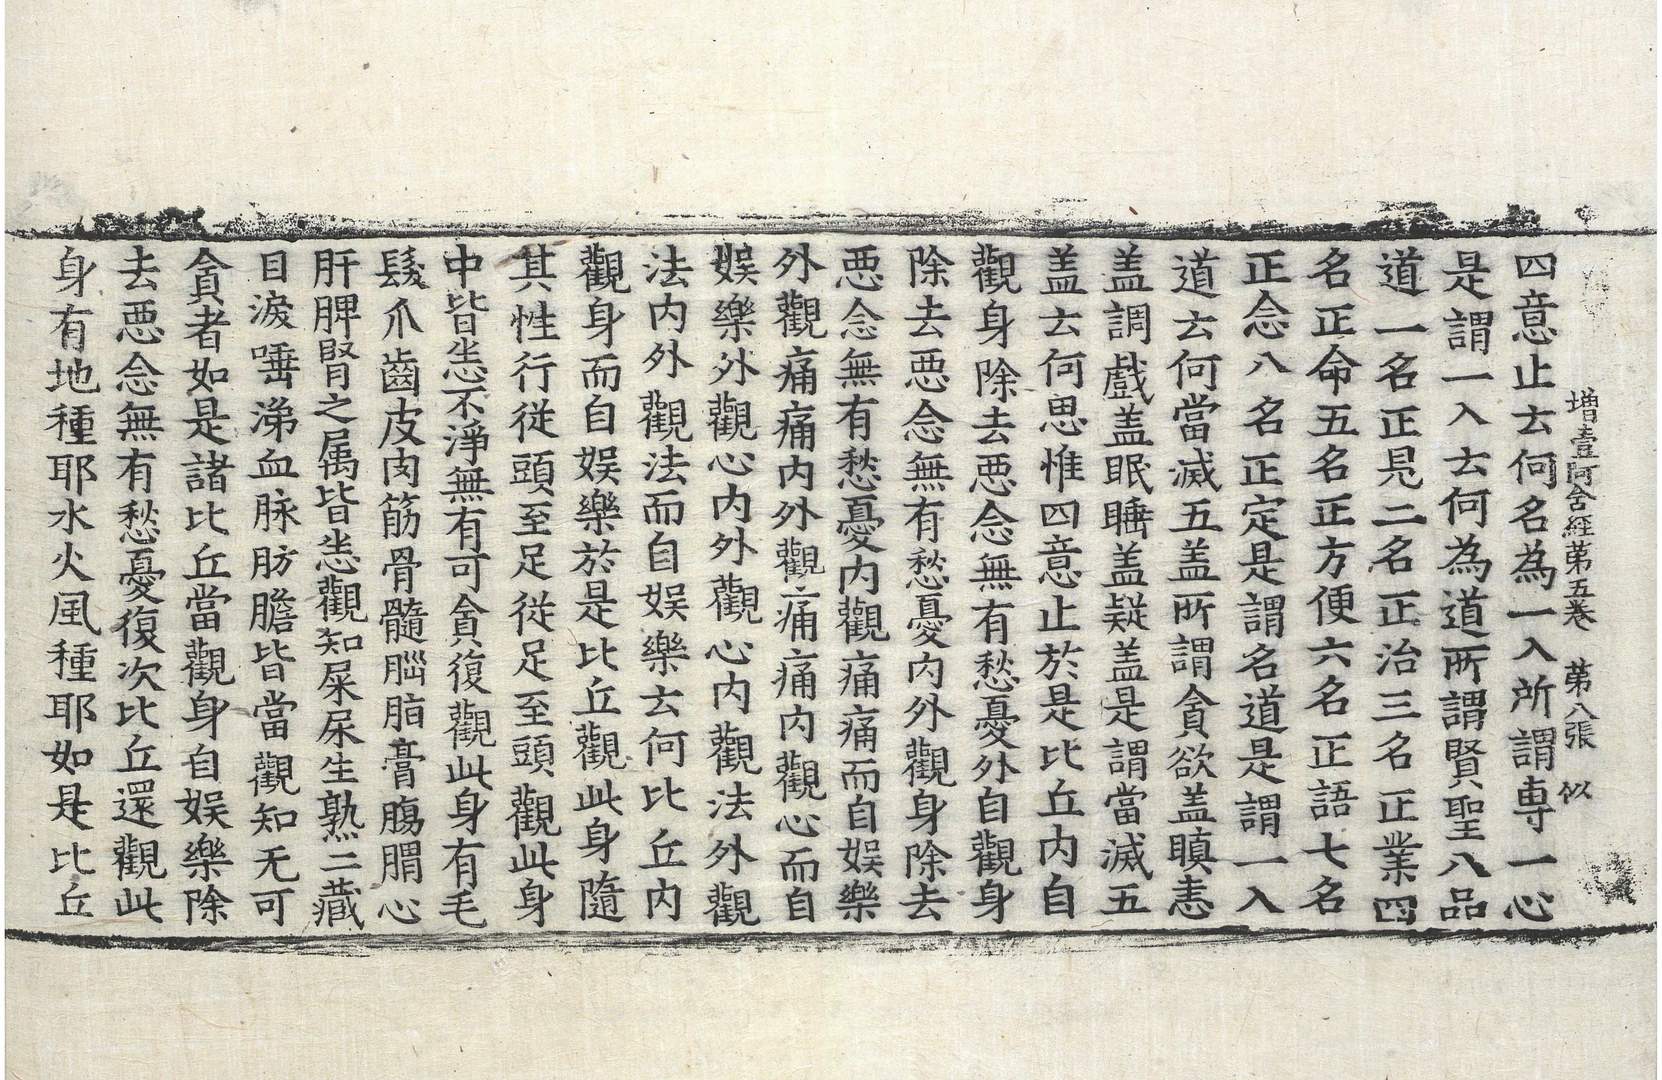 增壹阿含經第五卷　第八張　似
四意止去何名為一入所謂專一心
是謂一入去何為道所謂賢聖八品
道一名正見二名正治三名正業四
名正命五名正方便六名正語七名
正念八名正定是謂名道是謂一入
道去何當滅五盖所謂貪欲盖瞋恚
盖調戲盖眠睡盖疑盖是謂當滅五
盖去何思惟四意止於是比丘內自
觀身除去惡念無有愁憂外自觀身
除去惡念無有愁憂內外觀身除去
惡念無有愁憂內觀痛痛而自娛樂
外觀痛痛內外觀痛痛內觀心而自
娛樂外觀心內外觀心內觀法外觀
法內外觀法而自娛樂去何比丘內
觀身而自娛樂於是比丘觀此身隨
其性行從頭至足從足至頭觀此身
中皆悉不淨無有可貪復觀此身有毛
髮爪齒皮肉筋骨髓腦脂膏腸胃心
肝脾腎之属皆悉觀知屎尿生熟二藏
目淚唾涕血脉肪膽皆當觀知无可
貪者如是諸比丘當觀身自娛樂除
去惡念無有愁憂復次比丘還觀此
身有地種耶水火風種耶如是比丘